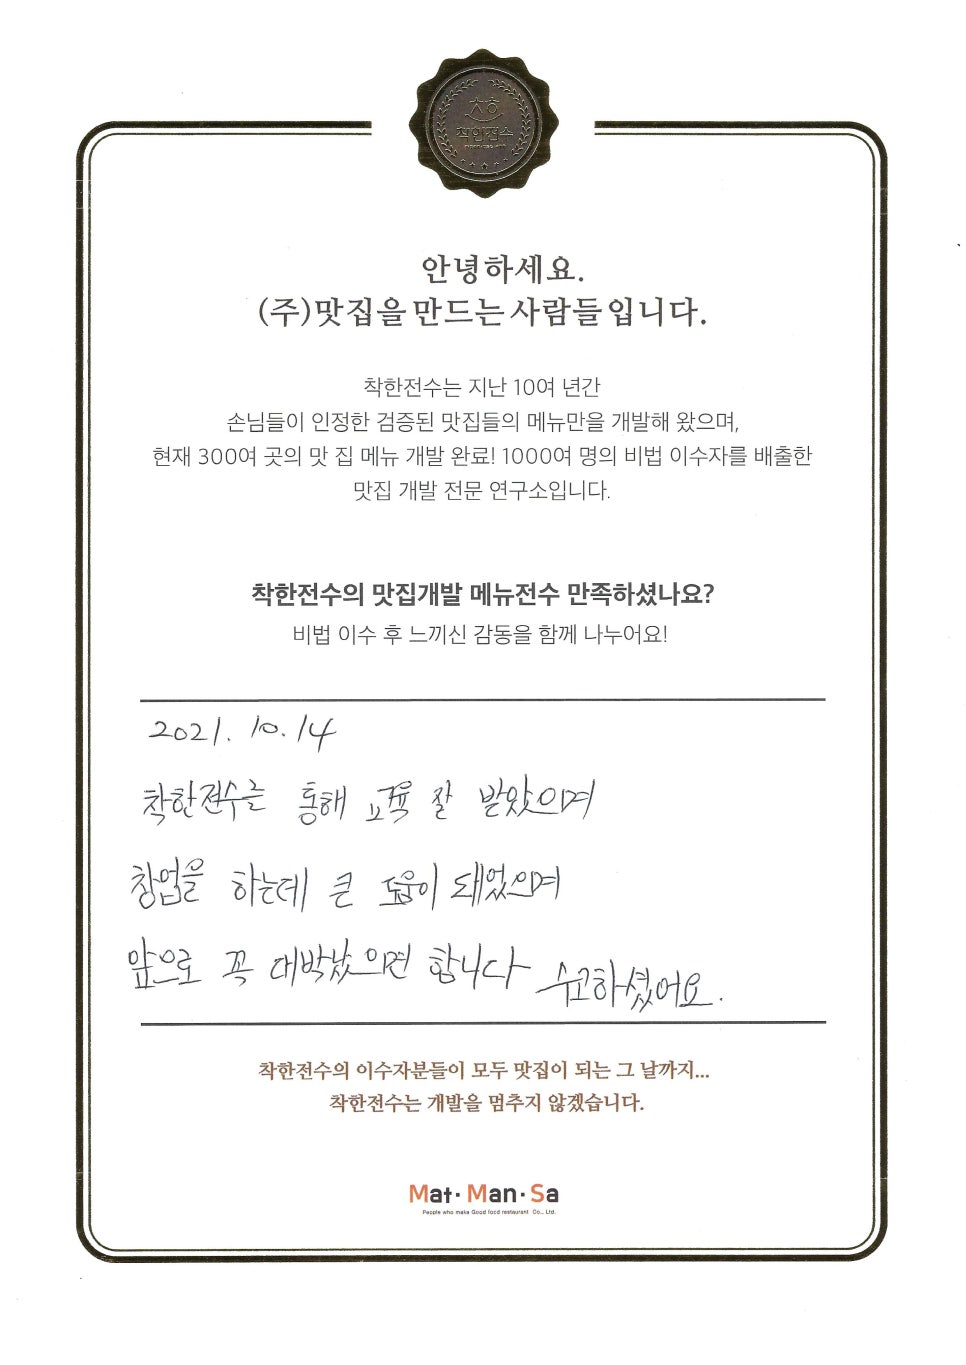 안녕하세요.
(주)맛집을 만드는 사람들입니다.
착한전수는 지난 10여 년간
손님들이 인정한 검증된 맛집들의 메뉴만을 개발해 왔으며,
현재 300여 곳의 맛 집 메뉴 개발 완료! 1000여 명의 비법 이수자를 배출한
맛집 개발 전문 연구소입니다.
착한전수의 맛집개발 메뉴전수 만족하셨나요?
비법 이수 후 느끼신 감동을 함께 나누어요!
2021. 10. 14
착한전수를 통해 교육 잘 받았으며
창업을 하는데 큰 도움이 돼었으며
앞으로 꼭 대박났으면 합니다 수고하셨어요.
착한전수의 이수자분들이 모두 맛집이 되는 그 날까지...
착한전수는 개발을 멈추지 않겠습니다.
Mat·Man·Sa
People who make Good food restaurant Co., Ltd.